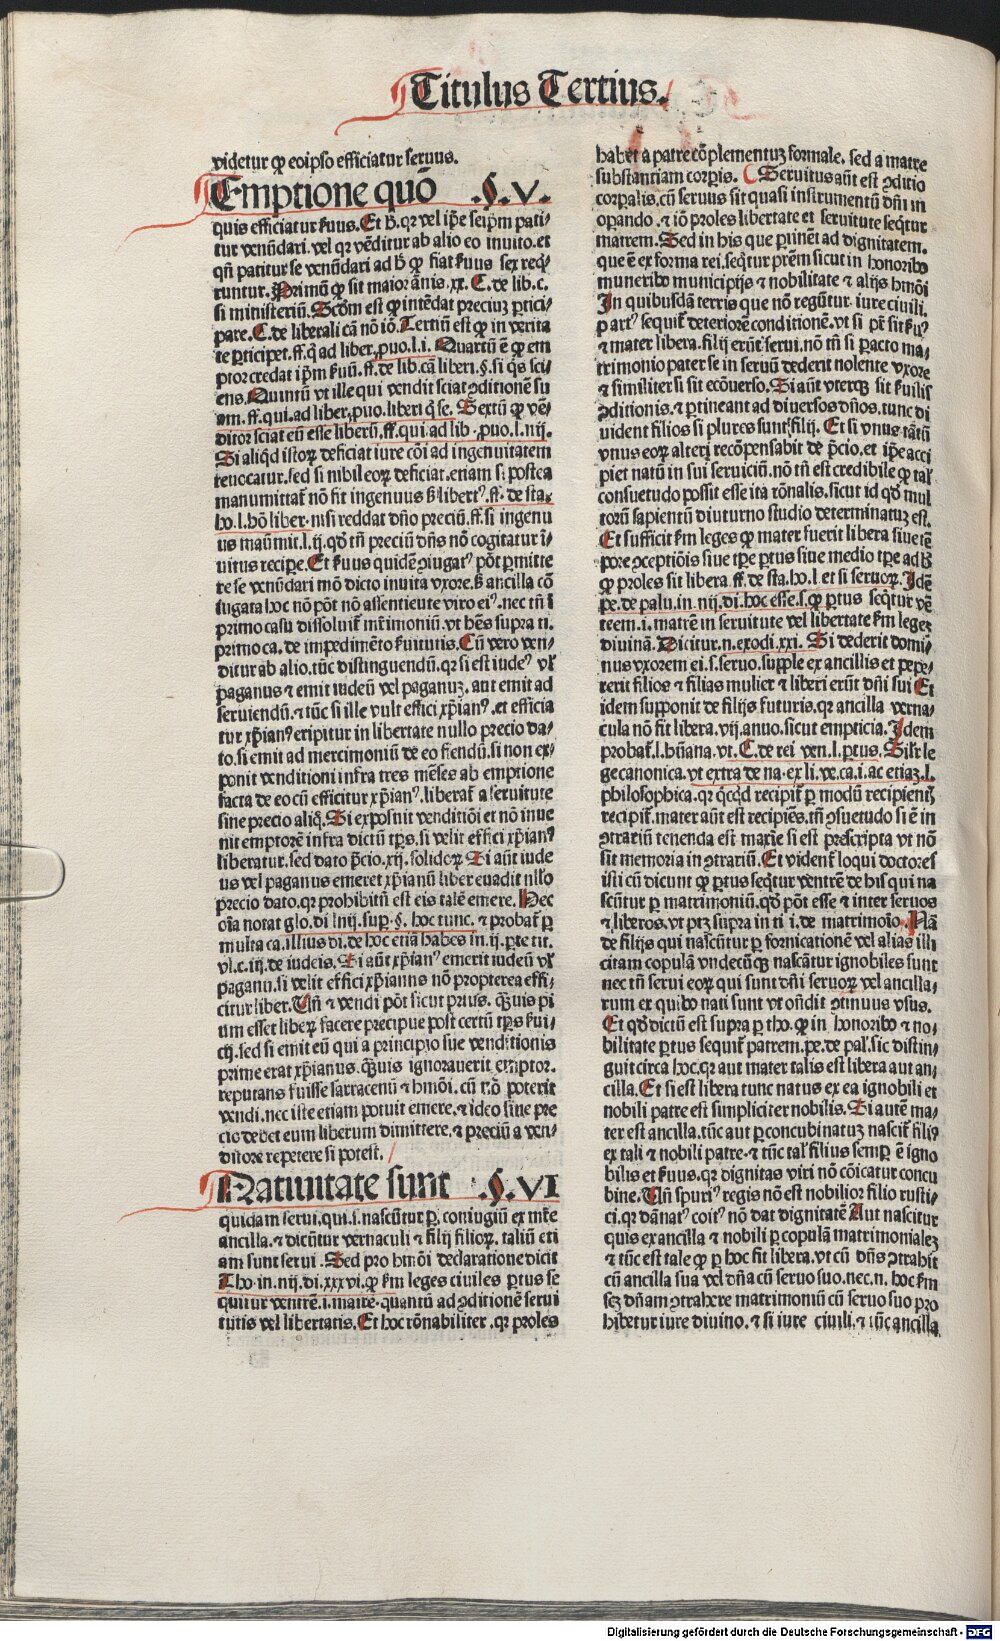 Titulus Tertius.
videtur ꝙ eoipso efficiatur seruus.
Emptione quō .§.V.
quis efficiatur ẜuus. Et ħ. qꝛ vel ip̄e seip̄m pati⸗
tur venūdari. vel qꝛ vēditur ab alio eo inuito. et
qn̄ patitur se venūdari ad ħ ꝙ fiat ẜuus sex req̇⸗
runtur. Primū ꝙ sit maior ānis .xx. C. de lib. c.
si ministeriū. Scd̄m est ꝙ intēdat preciuꝫ ꝑtici⸗
pare. C. de liberali cā nō iō. Tertiū est ꝙ in verita
te ꝑticipet. ff. q̇ ad liber. ꝓuo. l. i. Quartū ē ꝙ em
ptor credat ip̄m ẜuū. ff. de lib. cā liberi. §. si q̇s sci⸗
ens. Quintū vt ille qui vendit sciat ꝯditionē su
am. ff. qui. ad liber. ꝓuo. liberi q̇ se. Sextū ꝙ vē⸗
ditor sciat eū esse liberū. ff. qui ad lib. ꝓuo. l. nij.
Si aliq̇d istoꝝ deficiat iure cōi ad ingenuitatem
reuocatur. sed si nihil eoꝝ deficiat. etiam si postea
manumittat̉ nō fit ingenuus ẜ libertꝰ. ff. de sta.
ho. l. hō liber. nisi reddat dn̄o preciū. ff. si ingenu
us manūmit. l. ij. qđ tn̄ preciū dn̄s nō cogitatur ī⸗
uitus recipe. Et ẜuus quidē ꝯiugatꝰ pōt ꝑmitte
re se venūdari mō dicto inuita vxore. ẜ ancilla cō
iugata hoc nō pōt nō assentiente viro eiꝰ. nec tn̄ ī
primo casu dissoluit̉ mr̄imoniū. vt hēs supra ti.
primo ca. de impedimēto ẜuitutis. Cū vero ven⸗
ditur ab alio. tūc distinguendū. qꝛ si est iudeꝰ vl̉
paganus ⁊ emit iudeū vel paganuꝫ. aut emit ad
seruiendū. ⁊ tūc si ille vult effici xp̄ianꝰ. et efficia
tur xp̄ianꝰ eripitur in libertate nullo precio da⸗
to. si emit ad mercimoniū de eo fiendū. si non ex⸗
ponit venditioni infra tres mēses ab emptione
facta de eo cū efficitur xp̄ianꝰ. liberat̉ a seruitute
sine precio aliq̄. Si exposuit venditiōi et nō inue
nit emptorē infra dictū tp̄s. si velit effici xp̄ianꝰ
liberatur. sed dato p̄cio .xij. solidoꝝ Si aūt iude
us vel paganus emeret xp̄ianū liber euadit nll̉o
precio dato. qꝛ prohibitū est eis talē emere. Hec
oīa notat glo. di. lnij. suꝑ. §. hoc tunc. ⁊ probat̉ ꝑ
multa ca. illius di. de hoc etiā habes in .ij. ꝑte tit.
vl. c. iij. de iudeis. Si aūt xp̄ianꝰ emerit iudeū vl̉
paganū. si velit effici xp̄ianus nō propterea effi⸗
citur liber. Vn̄ ⁊ vendi pōt sicut prius. q̄uis pi
um esset liberꝝ facere precipue post certū tp̄s ẜui⸗
cij. sed si emit eū qui a principio sue venditionis
prime erat xp̄ianus. q̄uis ignorauerit emptor.
reputans fuisse sarracenū ⁊ hmōi. cū r̄o poterit
vendi. nec iste etiam potuit emere. ⁊ ideo sine pre
cio debet eum liberum dimittere. ⁊ preciū a ven⸗
ditore repetere si potest.
Natiuitate sunt .§.VI
quidam serui. qui .s. nascūtur ꝑ coniugiū ex mr̄e
ancilla. ⁊ dicūtur vernaculi ⁊ filij filioꝝ. taliū eti
am sunt serui. Sed pro hmōi declaratione dicit
Tho. in .nij. di. xxxvi. ꝙ ẜm leges ciuiles ꝑtus se
quitur ventrē. i. matrē. quantū ad ꝯditionē serui
tutis vel libertatis. Et hoc rōnabiliter. qꝛ proles
habet a patre cōplementuꝫ formale. sed a matre
substantiam corꝑis. Seruitus aūt est ꝯditio
corꝑalis. cū seruus sit quasi instrumentū dn̄i in
oꝑando. ⁊ iō proles libertate et seruitute seq̄tur
matrem. Sed in his que ꝑtinēt ad dignitatem.
que ē ex forma rei. seq̄tur pr̄em sicut in honoribꝰ
muneribꝰ municipijs ⁊ nobilitate ⁊ alijs hmōi
In quibusdā terris que nō regūtur. iure ciuili.
ꝑtꝰ sequit̉ deteriorē conditionē. vt si pr̄ sit ẜuꝰ
⁊ mater libera. filij erūt serui. nō tn̄ si ꝑacto ma⸗
trimonio pater se in seruū dederit nolente vxore
⁊ similiter si sit ecōuerso. Si aūt vterqꝫ sit ẜuilis
ꝯditionis. ⁊ ꝑtineant ad diuersos dn̄os. tunc di
uident filios si plures sunt filij. Et si vnus tātū
vnus eoꝝ alteri recōpensabit de p̄cio. et ip̄e acci
piet natū in sui seruiciū. nō tn̄ est credibile ꝙ tal̉
consuetudo possit esse ita rōnalis. sicut id qđ mul
torū sapientū diuturno studio determinatuꝫ est.
Et sufficit ẜm leges ꝙ mater fuerit libera siue tē
pore ꝯceptiōis siue tp̄e ꝑtus siue medio tp̄e ad ħ
ꝙ proles sit libera. ff. de sta. ho. l. et si seruoꝝ. Idē
pe. de palu. in .nij. di. hoc esse. s. ꝙ ꝑtus seq̄tur vē
trem. i. matrē in seruitute vel libertate ẜm legeꝫ
diuinā. Dicitur. n. exodi .xxi. Si dederit domi⸗
nus vxorem ei. s. seruo. supple ex ancillis et pepe⸗
rerit filios ⁊ filias mulier ⁊ liberi erūt dn̄i sui Et
idem supponit de filijs futuris. qꝛ ancilla verna⸗
cula nō fit libera. vij. anno. sicut empticia. Idem
probat̉. l. hūana. vt. C. de rei ven. l. ꝑtus. Sil̉r le
ge canonica. vt extra de na. ex li. ve. ca. i. ac etiaꝫ. l.
philosophica. qꝛ q̇cq̇d recipit̉ ꝑ modū recipientꝭ
recipit̉. mater aūt est recipiēs. tn̄ ꝯsuetudo si ē in
ꝯtrariū tenenda est maxīe si est prescripta vt nō
sit memoria in ꝯtrariū. Et vident̉ loqui doctores
isti cū dicunt ꝙ ꝑtus seq̄tur ventrē de his qui na
scūtur ꝑ matrimoniū. qđ pōt esse ⁊ inter seruos
⁊ liberos. vt ptꝫ supra in ti. i. de matrimoīo. Nā
de filijs qui nascūtur ꝑ fornicationē vel alias illi
citam copulā vndecūqꝫ nascātur ignobiles sunt
nec tn̄ serui eoꝝ qui sunt dn̄i seruoꝝ vel ancilla⸗
rum ex quibꝰ nati sunt vt on̄dit ꝯtinuus vsus.
Et qđ dictū est supra ꝑ tho. ꝙ in honoribꝰ ⁊ no⸗
bilitate ꝑtus sequit̉ patrem. pe. de pal̉. sic distin⸗
guit circa hoc. qꝛ aut mater talis est libera aut an⸗
cilla. Et si est libera tunc natus ex ea ignobili et
nobili patre est simpliciter nobilis. Si autē ma⸗
ter est ancilla. tūc aut ꝑ concubinatuꝫ nascit̉ filiꝰ
ex tali ⁊ nobili patre. ⁊ tūc tal̉ filius semꝑ ē igno
bilis et ẜuus. qꝛ dignitas viri nō cōicatur concu
bine. Vn̄ spuriꝰ regis nō est nobilior filio rusti⸗
ci. qꝛ dānatꝰ coitꝰ nō dat dignitatē Aut nascitur
quis ex ancilla ⁊ nobili ꝑ copulā matrimonialeꝫ
⁊ tūc est tale ꝙ ꝑ hoc fit libera. vt cū dn̄s ꝯtrahit
cū ancilla sua vel dn̄a cū seruo suo. nec. n. hoc ẜm
seꝫ dn̄am ꝯtrahere matrimoniū cū seruo suo pro
hibetur iure diuino. ⁊ si iure ciuili. ⁊ tūc ancilla
Digitalisierung gefördert durch die Deutsche Forschungsgemeinschaft - DFG